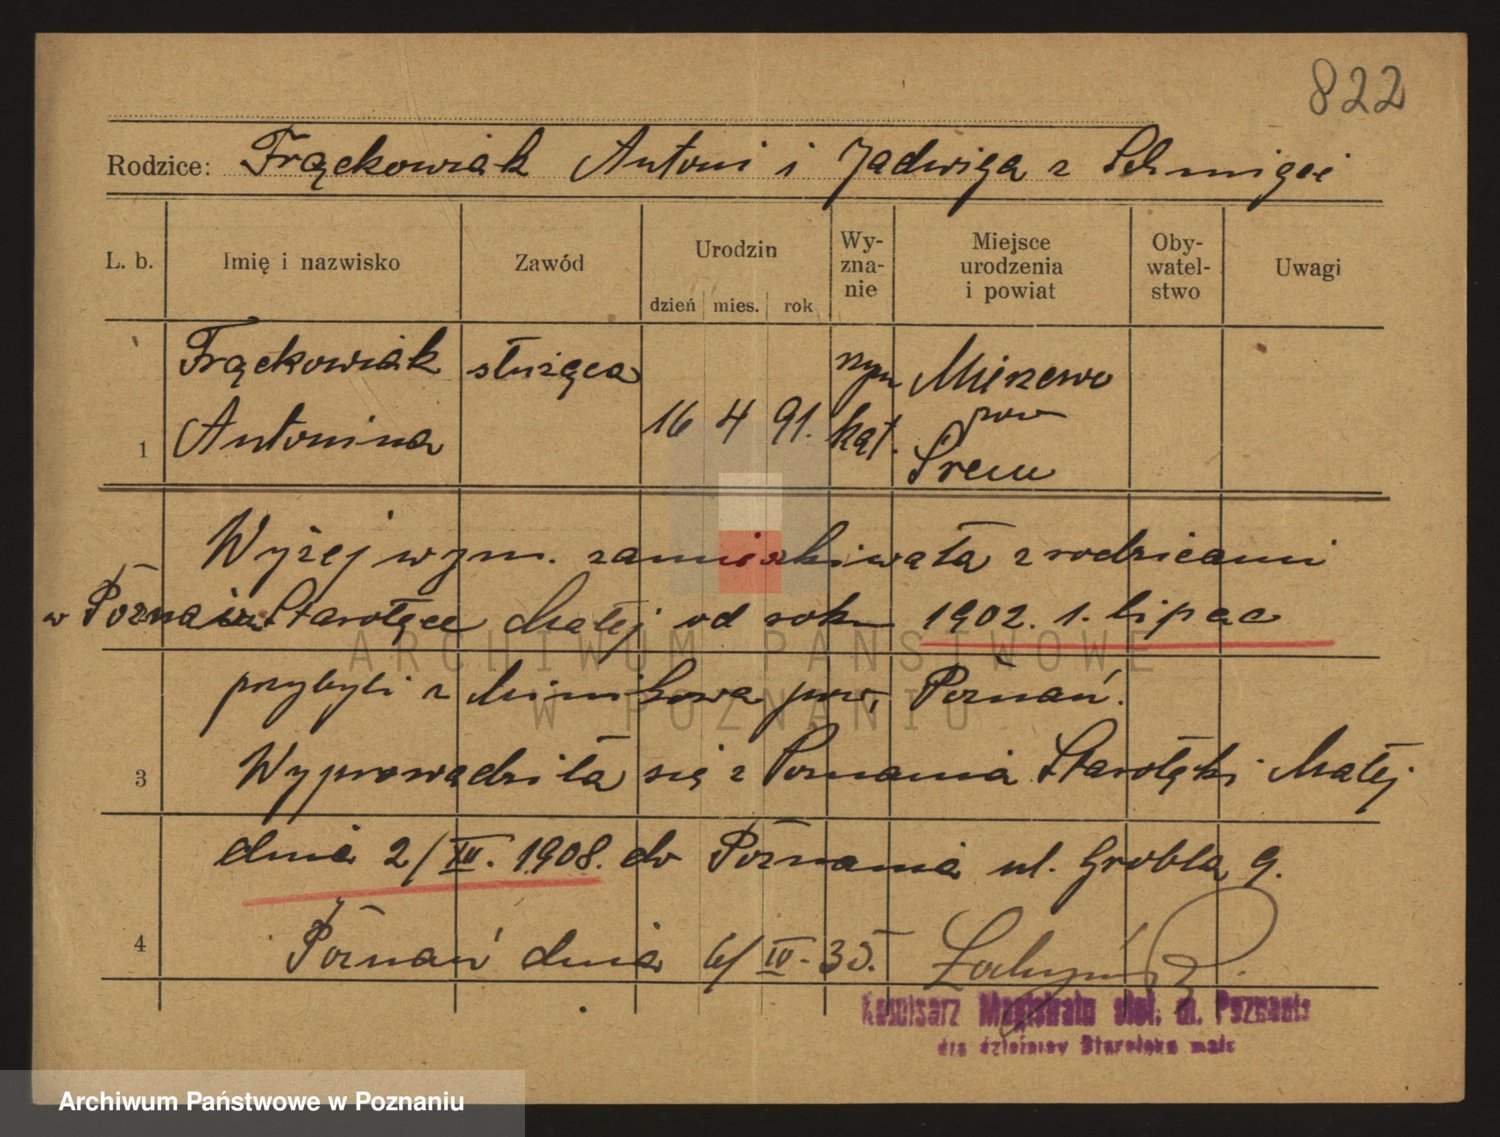 822
Rodzice: Frąckowiak Antoni i Jadwiga z
L. b. Imię i nazwisko Zawód Urodzin dzień mies. rok Wy-zna-nie Miejsce urodzenia i powiat Oby-watel-stwo Uwagi
Frąckowiak służąca rzym Mierzewo
pow
1 Antonina 16 4 91. kat. Śrem
Wyżej wym. zamieszkiwała z rodzicami
w Starołęce Małej od roku 1902. 1. lipca
przybyli z Minikowa pow. Poznań.
3 Wyprowadziła się z Poznania Starołęki Małej
dnia 2/ 1908. do Poznania ul. Grobla 9.
4 Poznań dnia 6/IV. 35.
Komisarz Magistratu stoł. m. Poznania
dla dzielnicy Starołęka mała
ARCHIWUM PAŃSTWOWE
W POZNANIU
Archiwum Państwowe w Poznaniu